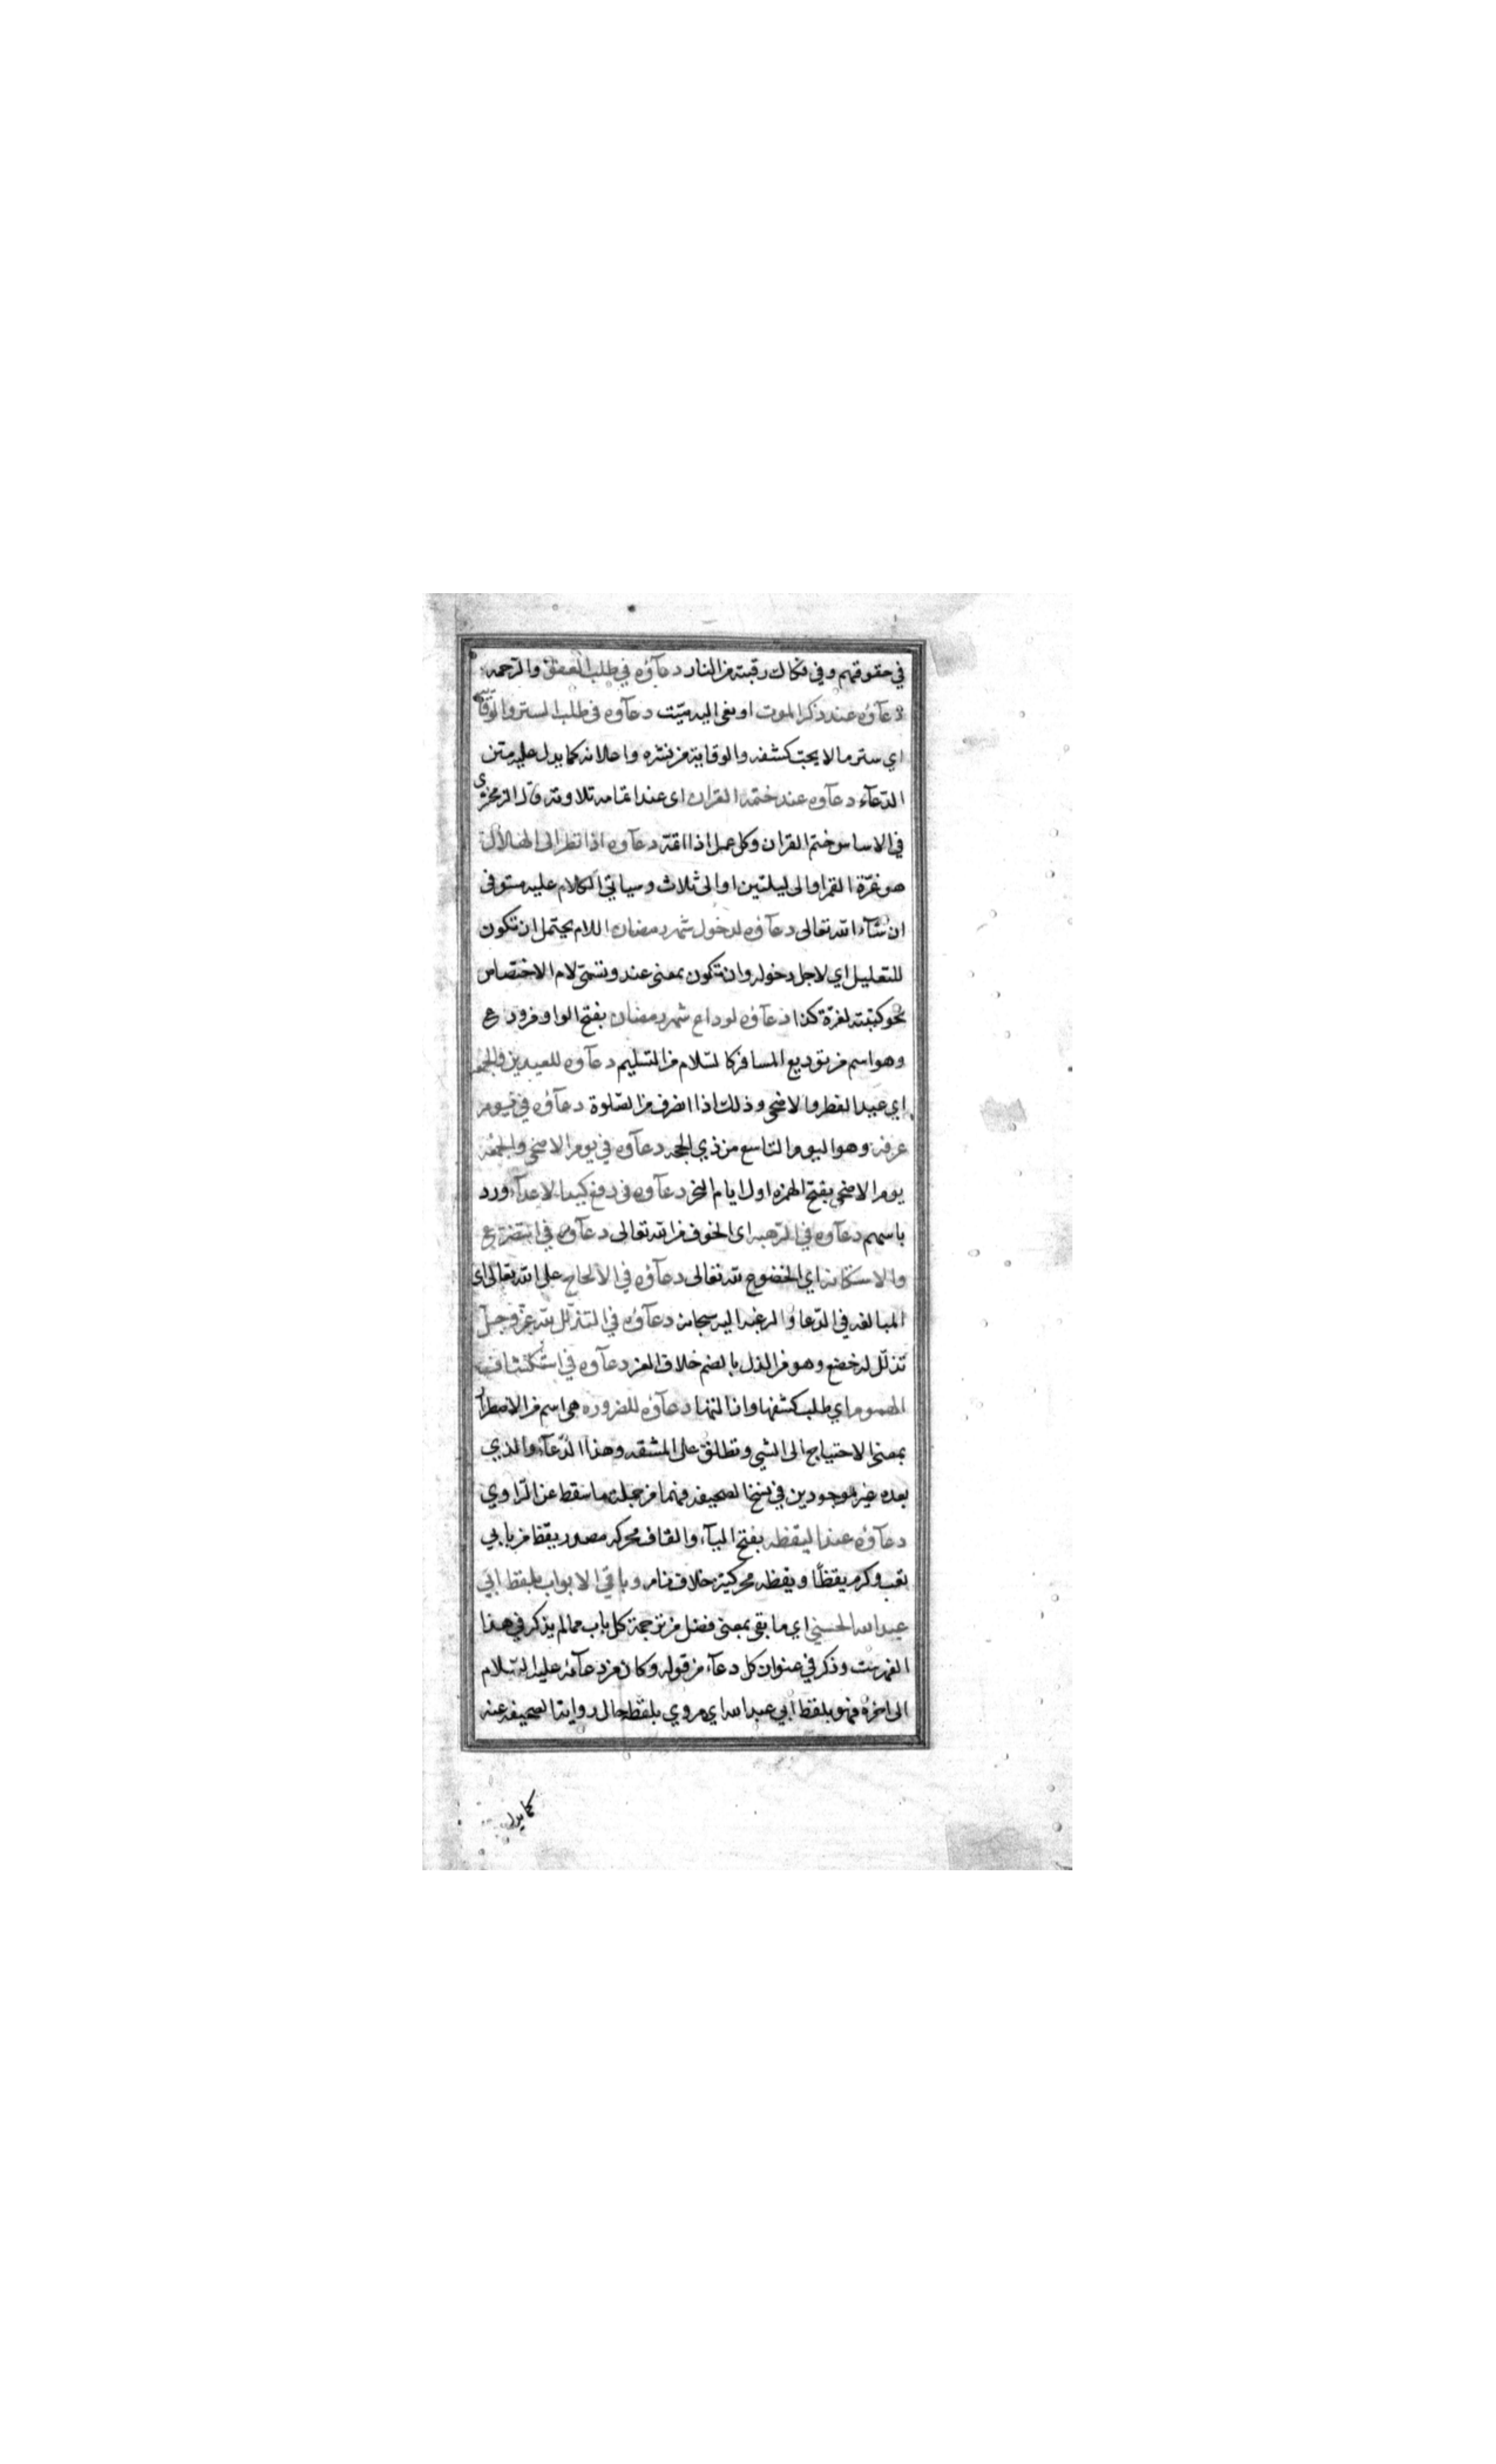 في حقوقهم وفي فكاك رقبته من النار دعآؤه في طلب العفو والرحمه
دعآؤه عند ذكر الموت او نعى اليه ميّت دعآوه في طلب الستر والوقاية
اي ستر ما لا يحب كشفه والوقاية من نشره واعلانه كما يدل عليه متن
الدّعآء دعآوه عند ختمه القران اى عند اتمامه تلاوته قال الزمخشرى
في الاساس ختم القران وكل عمل اذا اتمّه دعآوه اذا نظر الى الهلال
هو غرّة القمر او الى ليلتين او الى ثلاث وسياتي الكلام عليه مستوفى
ان شآء الله تعالى دعآؤه لدخول شهر رمضان اللام يحتمل ان تكون
للتعليل اي لاجل دخوله وان تكون بمعنى عند وتسمّى لام الاختصاص
نحو كتبته لغرّة كذا دعآؤه لوداع شهر رمضان بفتح الواو من ودع
وهو اسم من توديع المسافر كالسّلام من التسليم دعآوه للعيدين والجمعه
اي عيد الفطر والاضحى وذلك اذا انصرف من الصّلوة دعآؤه في يوم
عرفه وهو اليوم التاسع من ذي الحجه دعآوه في يوم الاضحى والجمعه
يوم الاضحى بفتح الهمزه اول ايام النحر دعآوه في دفع كيد الاعدآء ورد
باسهم دعآوه في الرّهبه اى الخوف من الله تعالى دعآؤه في التضرّع
والاستكانه اي الخضوع لله تعالى دعآؤه في الالحاح على الله تعالى اى
المبالغه في الدّعاء والرغبه اليه سبحانه دعآؤه في التذلّل لله عزّ وجلّ
تذلّل له خضع وهو من الذل بالضم خلاف العز دعآوه في استكشاف
الهموم اي طلب كشفها وازالتها دعآؤه للضروره هي اسم من الاضطرار
بمعنى الاحتياج الى الشي وتطلق على المشقه وهذا الدّعآء والذي
بعده غير موجودين في نسخ الصحيفه فهما من جملة ما سقط عن الرّاوي
دعآؤه عند اليقظه بفتح اليآء والقاف محركه مصدر يقظ من بابي
تعب وكرم يقظًا ويقظه محركتين خلاف نام وباقي الابواب بلفظ ابي
عبد الله الحسني اي ما بقى بمعنى فضل من ترجمة كل باب مما لم يذكر في هذا
الفهرست وذكر في عنوان كل دعآء من قوله وكان من دعآئه عليه السّلام
الى اخره فهو بلفظ ابي عبد الله اي مروي بلفظه حال روايته الصحيفه عنه
كما يدل